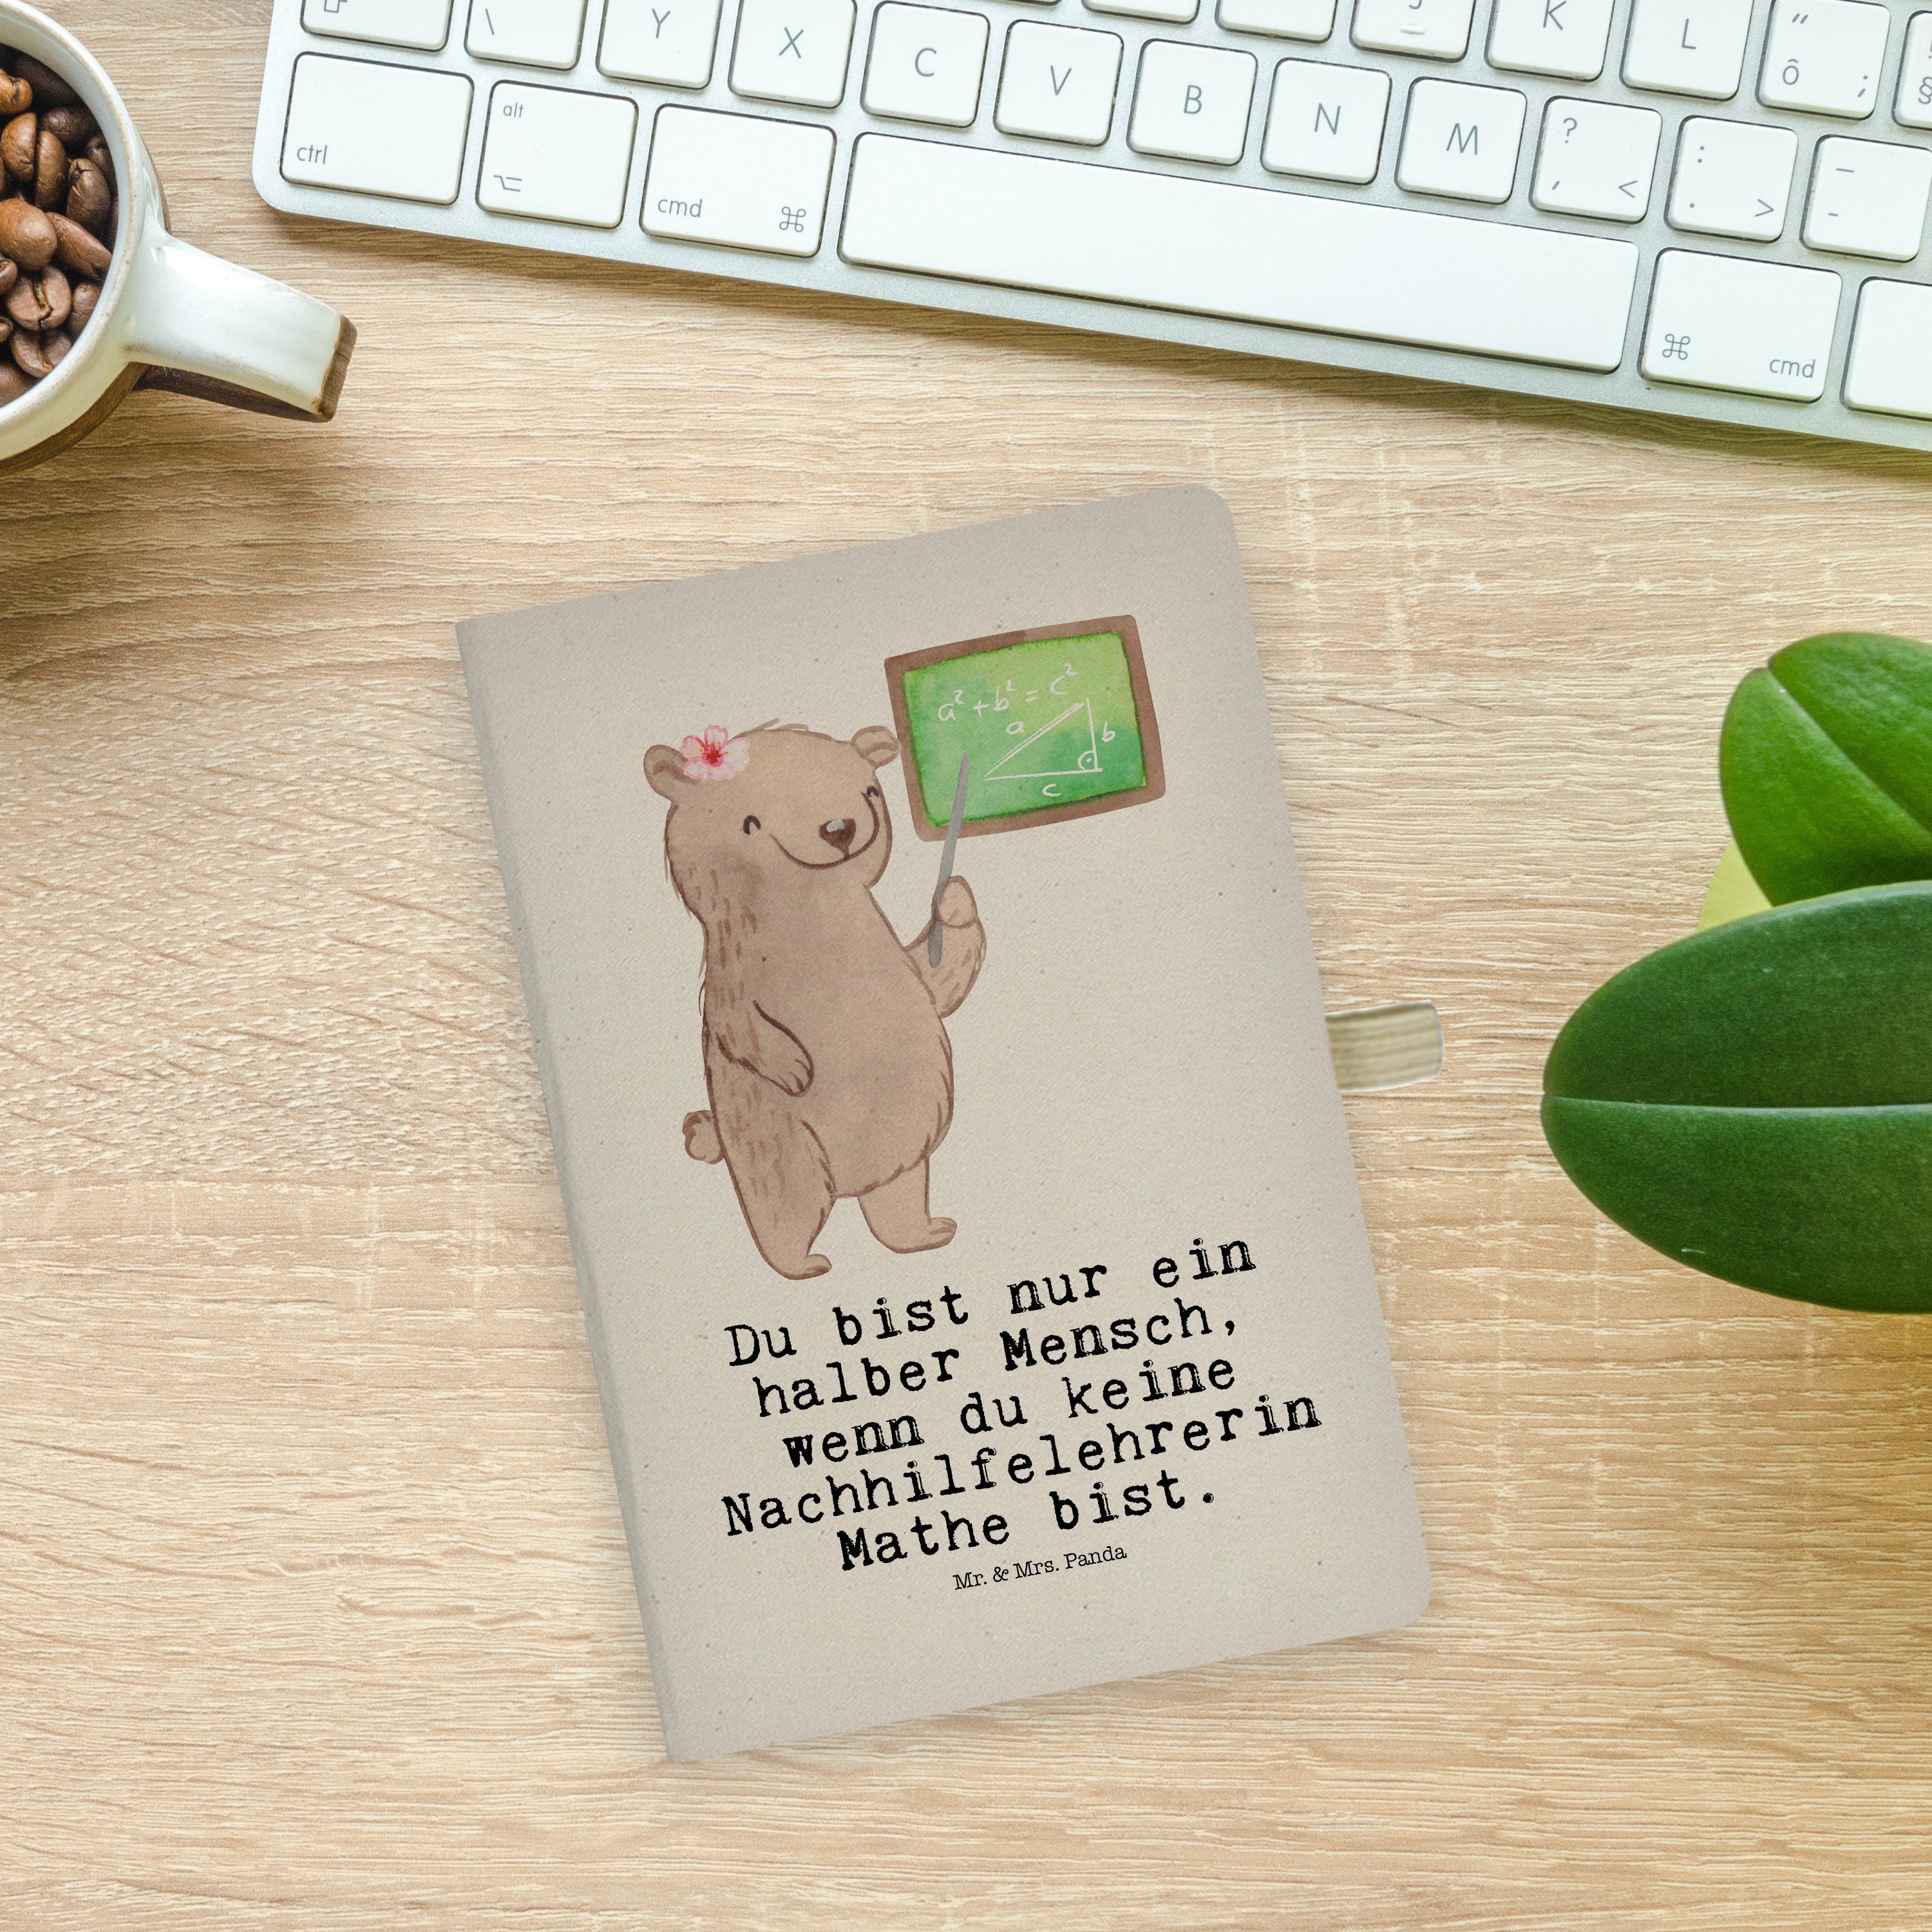 \ Y X C V B N M K L
ctrl alt cmd ⌘
" ô ;
? , <
: . >
_ -
⌘ cmd
a² + b² = c²
a b
c
Du bist nur ein
halber Mensch,
wenn du keine
Nachhilfelehrerin
Mathe bist.
Mr. & Mrs. Panda